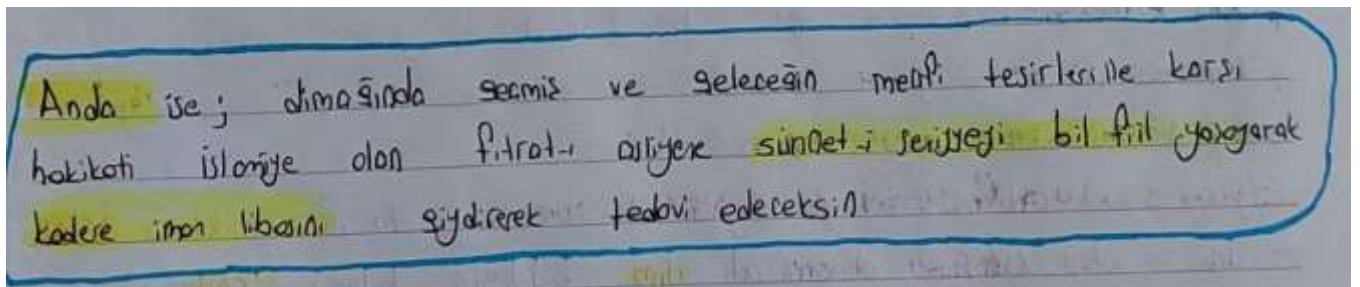 Anda ise; dimağında geçmiş ve geleceğin menfi tesirlerine karşı
hakikati islamiye olan fıtrat-ı asliyene sünnet-i seniyyeyi bil fiil yaşayarak
kadere iman libasını giydirerek tedavi edeceksin